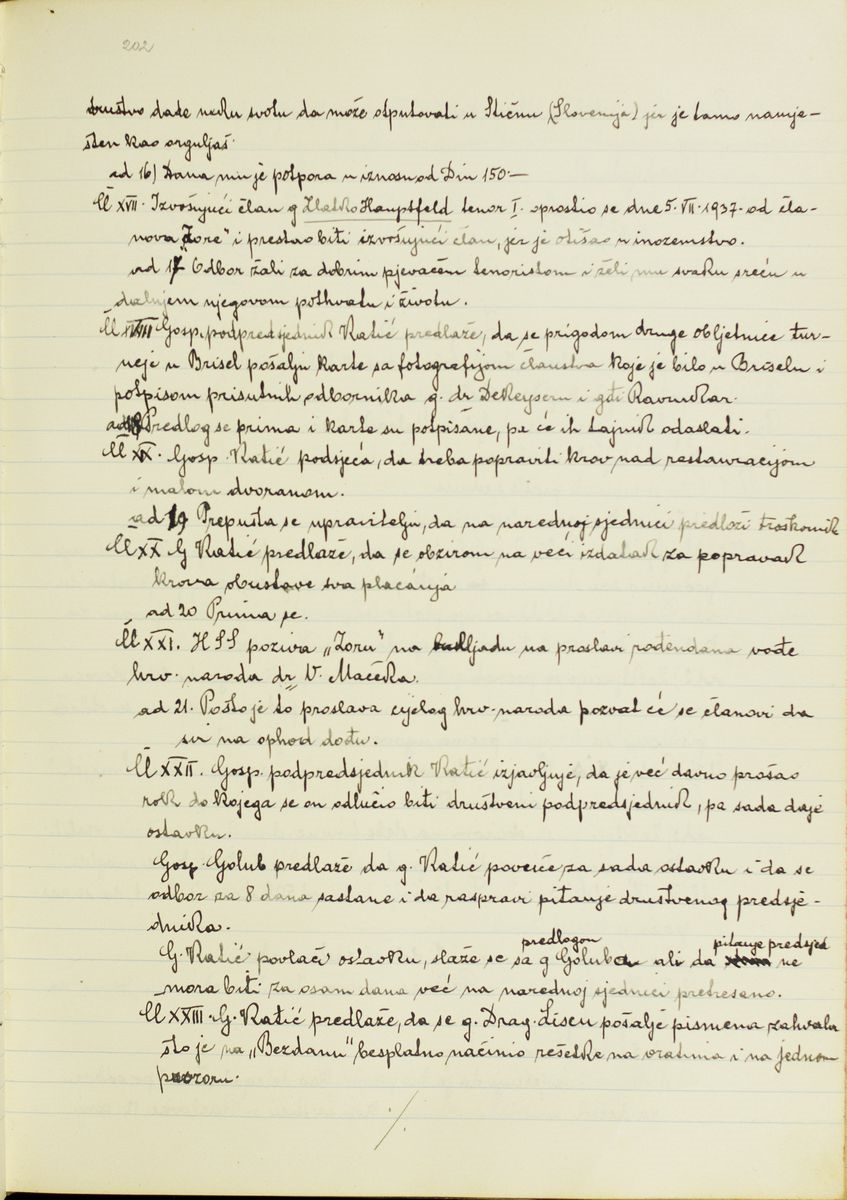 202
društvo dade neku svotu da može otputovati u Stičnu (Slovenija) jer je tamo namje-
šten kao orguljaš.
ad 16) Dana mu je potpora u iznosu od Din 150.—
Čl XVII. Izvošujući član g Zlatko Hauptfeld tenor I. oprostio se dne 5. VII. 1937. od čla-
nova „Zore" i prestao biti izvošujući član, jer je otišao u inozemstvo.
ad 17 Odbor žali za dobrim pjevačem tenoristom i želi mu svaku sreću u
daljnjem njegovom pothvatu i životu.
Čl XVIII Gosp. podpredsjednik Katić predlaže, da se prigodom druge obljetnice tur-
neje u Brisel pošalju karte sa fotografijom članstva koje je bilo u Briselu i
potpisom prisutnih odbornika g. dr DeKeyseru i gđi Ravnikar.
ad 18 Predlog se prima i karte su potpisane, pa će ih tajnik odaslati.
Čl XIX. Gosp. Katić podsjeća, da treba popraviti krov nad restauracijom
i malom dvoranom.
ad 19 Prepušta se upravitelju, da na narednoj sjednici predloži troškovnik
Čl XX G Katić predlaže, da se obzirom na veći izdatak za popravak
krova obustave sva plaćanja
ad 20 Prima se.
Čl XXI. HSS poziva „Zoru" na bakljadu na proslavi rođendana vođe
hrv. naroda dr V. Mačeka.
ad 21. Pošto je to proslava cijelog hrv. naroda pozvat će se članovi da
svi na ophod dođu.
Čl XXII. Gosp. podpredsjednik Katić izjavljuje, da je već davno prošao
rok do kojega se on odlučio biti društveni podpredsjednik, pa sada daje
ostavku.
Gosp. Golub predlaže da g. Katić povuče za sada ostavku i da se
odbor za 8 dana sastane i da raspravi pitanje društvenog predsje-
dnika.
G. Katić povlači ostavku, slaže se sa predlogom g Goluba ali da pitanje predsjed ne
mora biti za osam dana već na narednoj sjednici pretresano.
Čl XXIII. G. Katić predlaže, da se g. Drag. Liscu pošalje pismena zahvala
što je na „Bezdanu" besplatno načinio rešetke na vratima i na jednom
prozoru.
./.